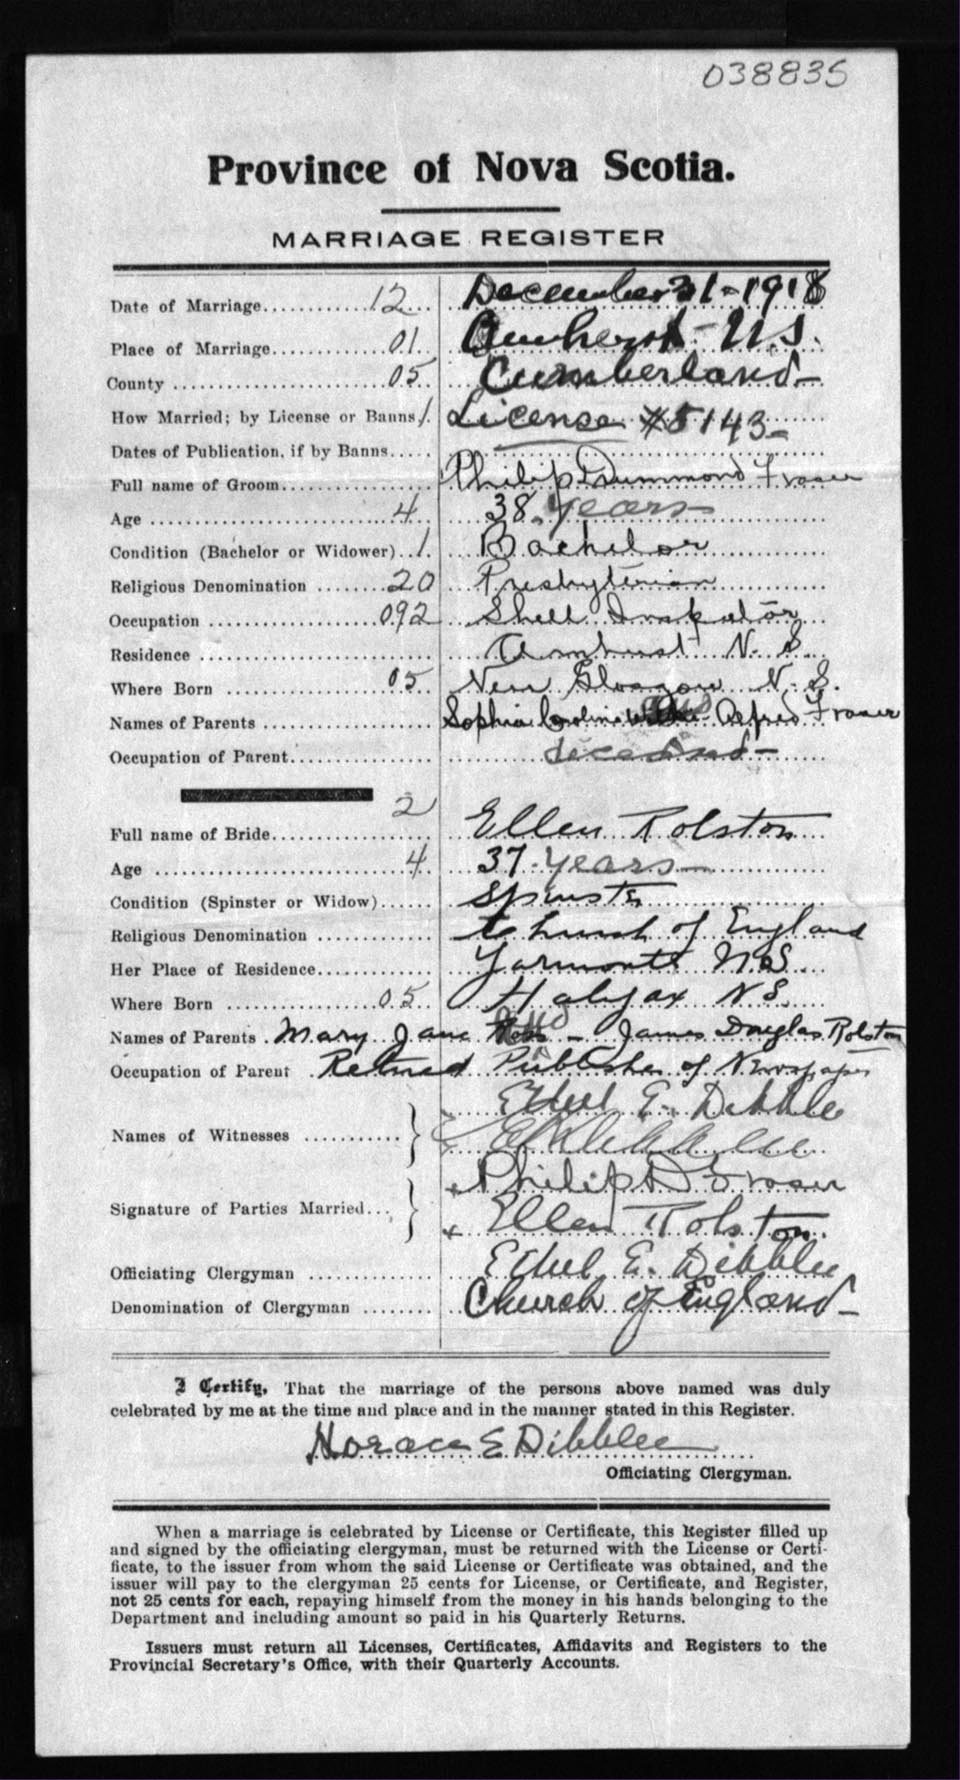 038835
Province of Nova Scotia.
MARRIAGE REGISTER
Date of Marriage 12 December 31-1918
Place of Marriage 01 Amherst N.S.
County 05 Cumberland
How Married; by License or Banns 1 License #5143
Dates of Publication, if by Banns
Full name of Groom Philip Drummond Fraser
Age 4 38 years
Condition (Bachelor or Widower) 1 Bachelor
Religious Denomination 20 Presbyterian
Occupation 092 Shell Inspector
Residence Amherst N.S.
Where Born 05 New Glasgow N.S.
Names of Parents Sophia Caroline and Alfred Fraser
Occupation of Parent deceased
2
Full name of Bride Ellen Rolston
Age 4 37 years
Condition (Spinster or Widow) Spinster
Religious Denomination Church of England
Her Place of Residence Yarmouth N.S.
Where Born 05 Halifax N.S.
Names of Parents Mary Jane and James Douglas Rolston
Occupation of Parent Retired Publisher of Newspaper
Ethel E. Dibblee
Names of Witnesses
Philip D Fraser
Signature of Parties Married
Ellen Rolston
Officiating Clergyman Ethel E. Dibblee
Denomination of Clergyman Church of England
I Certify, That the marriage of the persons above named was duly
celebrated by me at the time and place and in the manner stated in this Register.
Horace E Dibblee
Officiating Clergyman.
When a marriage is celebrated by License or Certificate, this Register filled up
and signed by the officiating clergyman, must be returned with the License or Certi-
ficate, to the issuer from whom the said License or Certificate was obtained, and the
issuer will pay to the clergyman 25 cents for License, or Certificate, and Register,
not 25 cents for each, repaying himself from the money in his hands belonging to the
Department and including amount so paid in his Quarterly Returns.
Issuers must return all Licenses, Certificates, Affidavits and Registers to the
Provincial Secretary's Office, with their Quarterly Accounts.